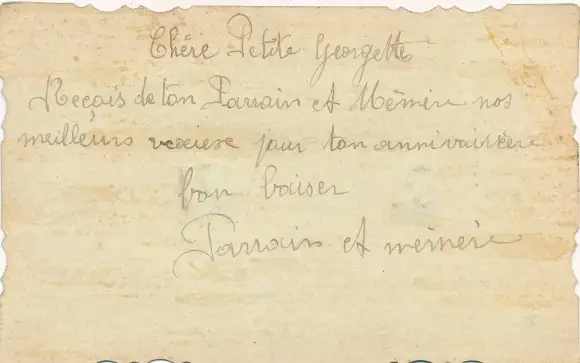 Chére Petite Georgette
Reçois de ton Parrain et Mémère nos
meilleurs pour ton annivairsère
bon baiser
Parrain et mémère